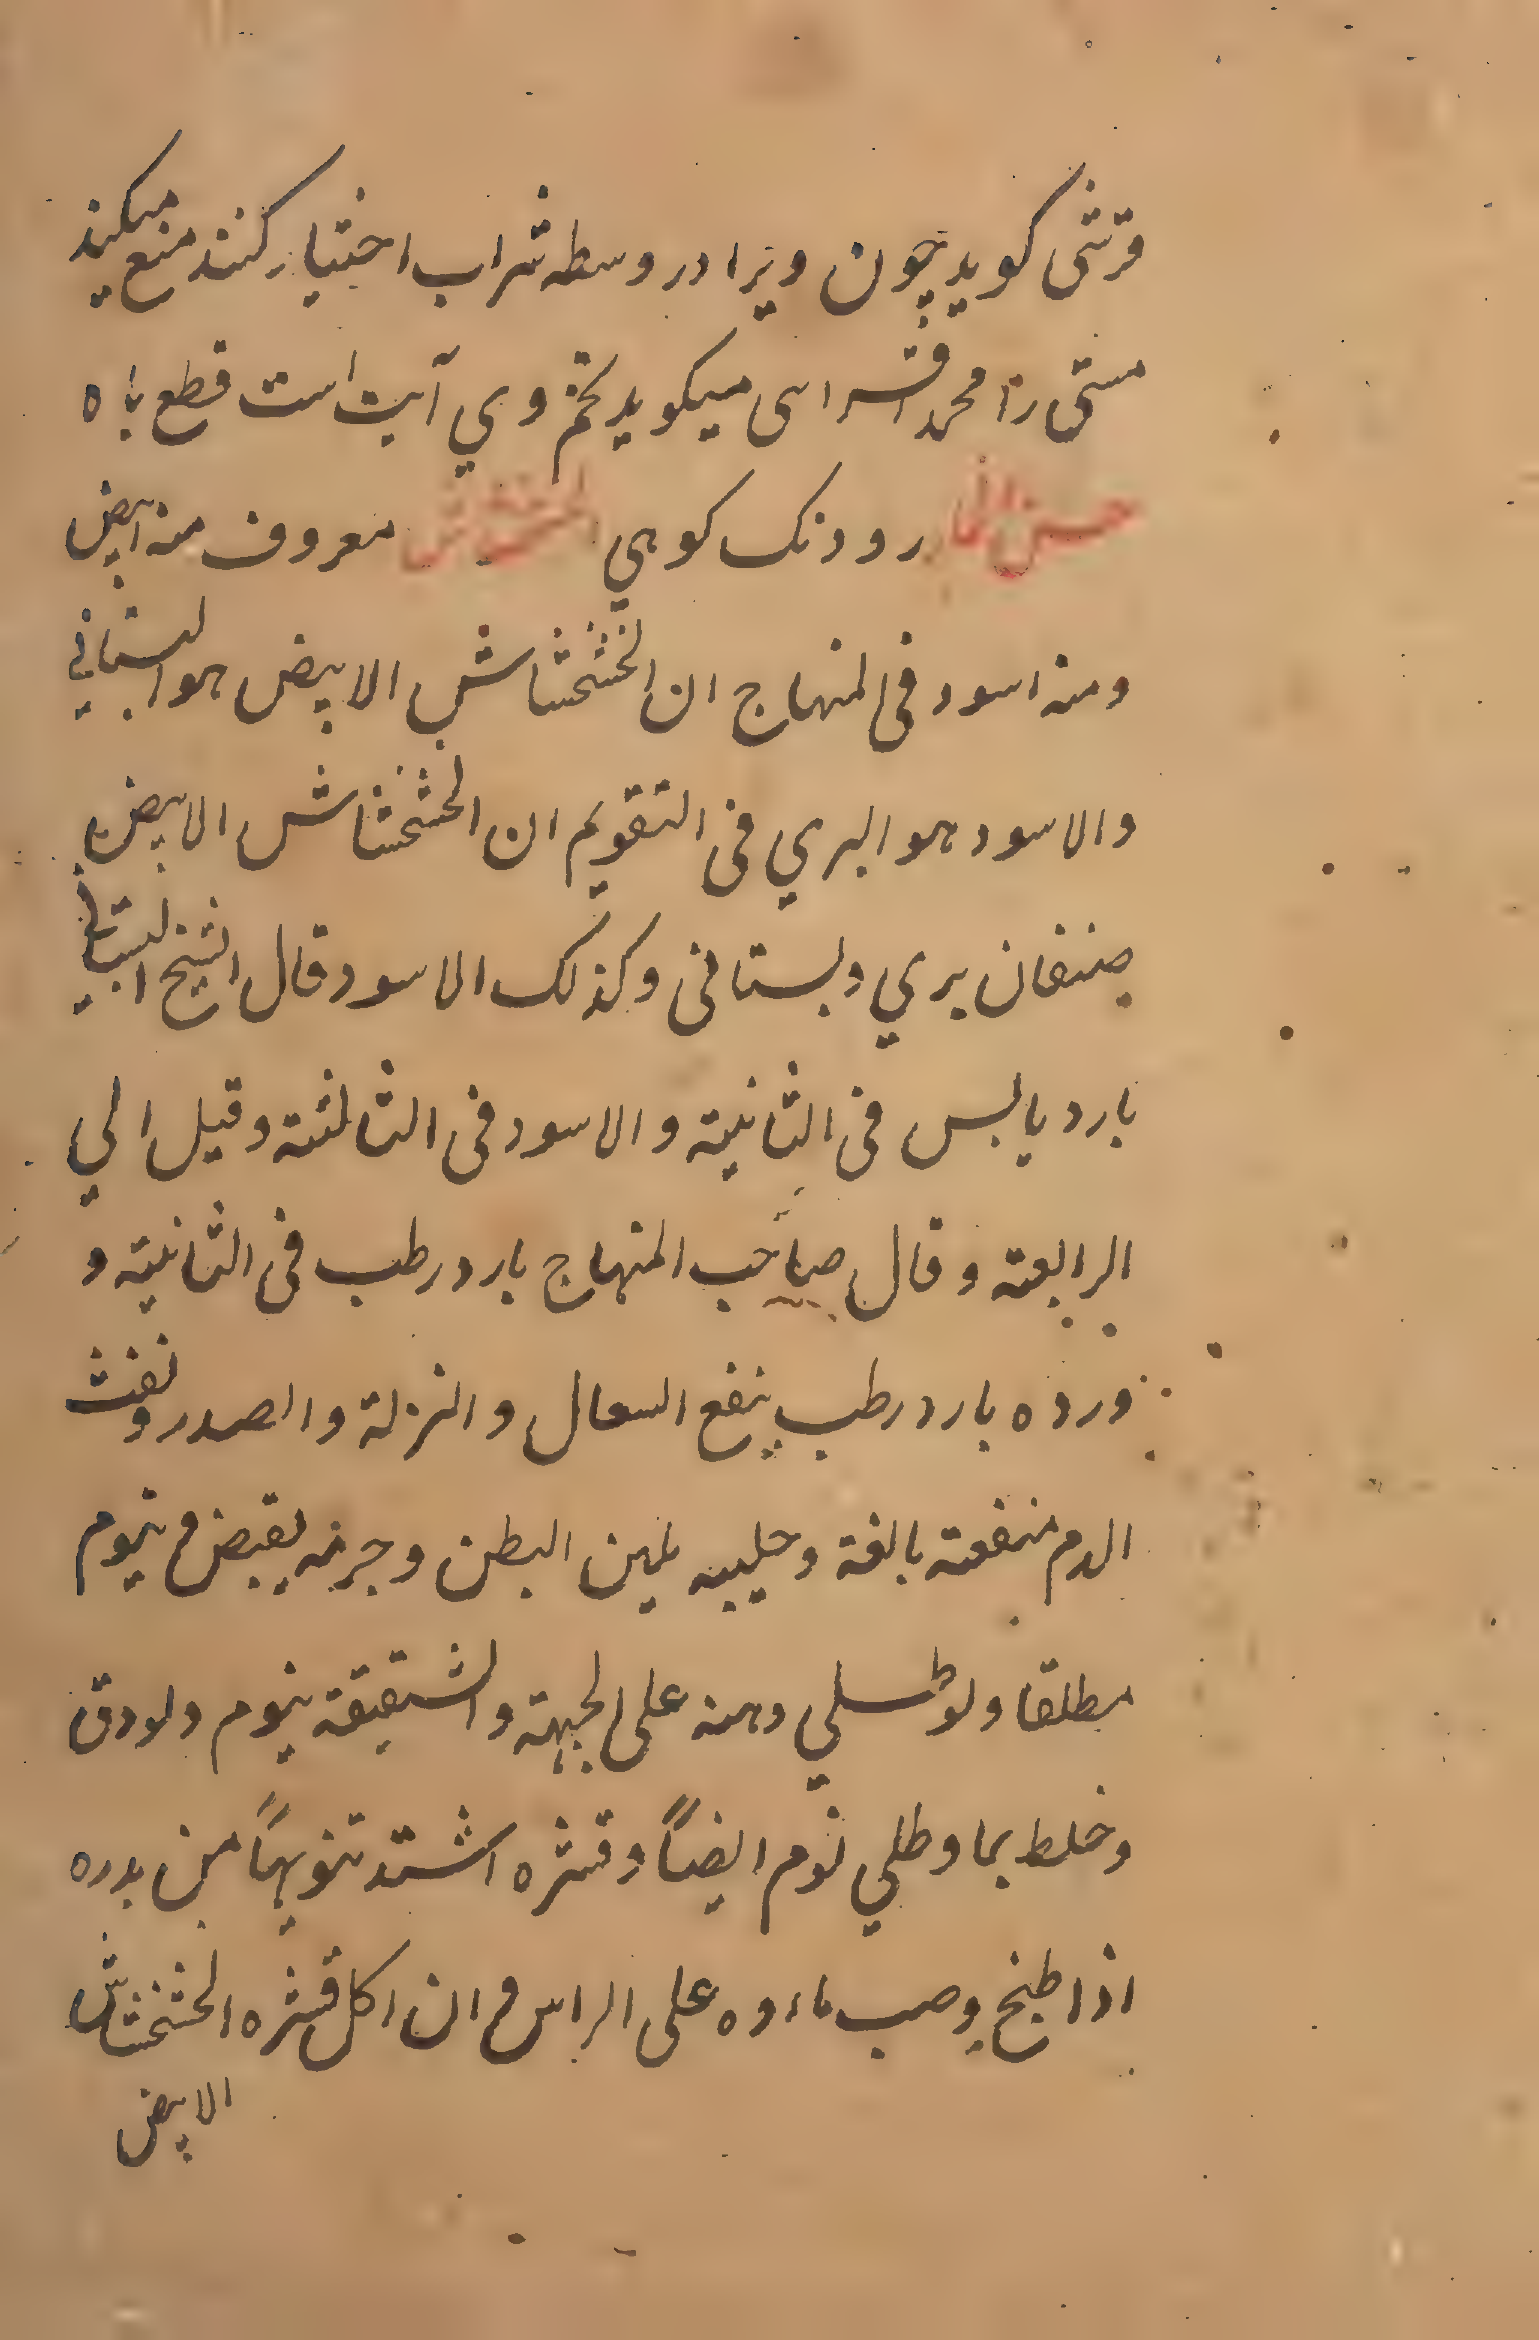 قرشی کوید چون ویرا در وسطه شراب اختیار کنند منع میکند
مستی را محمد اقسرائی میکوید تخم وي آیت است قطع باه
خس الحمار رودنک کوهي الخشخاش معروف منه ابیض
ومنه اسود فی المنهاج ان الخشخاش الابیض هو البستاني
والاسود هو البري فی التقویم ان الخشخاش الابیض
صنفان بري وبستانی وکذلک الاسود قال الشیخ البستاني
بارد یابس فی الثانیة والاسود فی الثالثة وقیل الي
الرابعة وقال صاحب المنهاج بارد رطب فی الثانیة و
ورده بارد رطب ینفع السعال والنزلة والصدر ونفث
الدم منفعة بالغة وحلیبه یلین البطن وجرمه یقبض وینوم
مطلقا ولو طلي دهنه علی الجبهة والشقیقة ینوم ولو دق
وخلط بما وطلي نوم ایضاً وقشره اشتد تنویماً من بدره
اذا طبخ وصب ماءوه علی الراس وان اکل قشره الخشخاش
الابیض